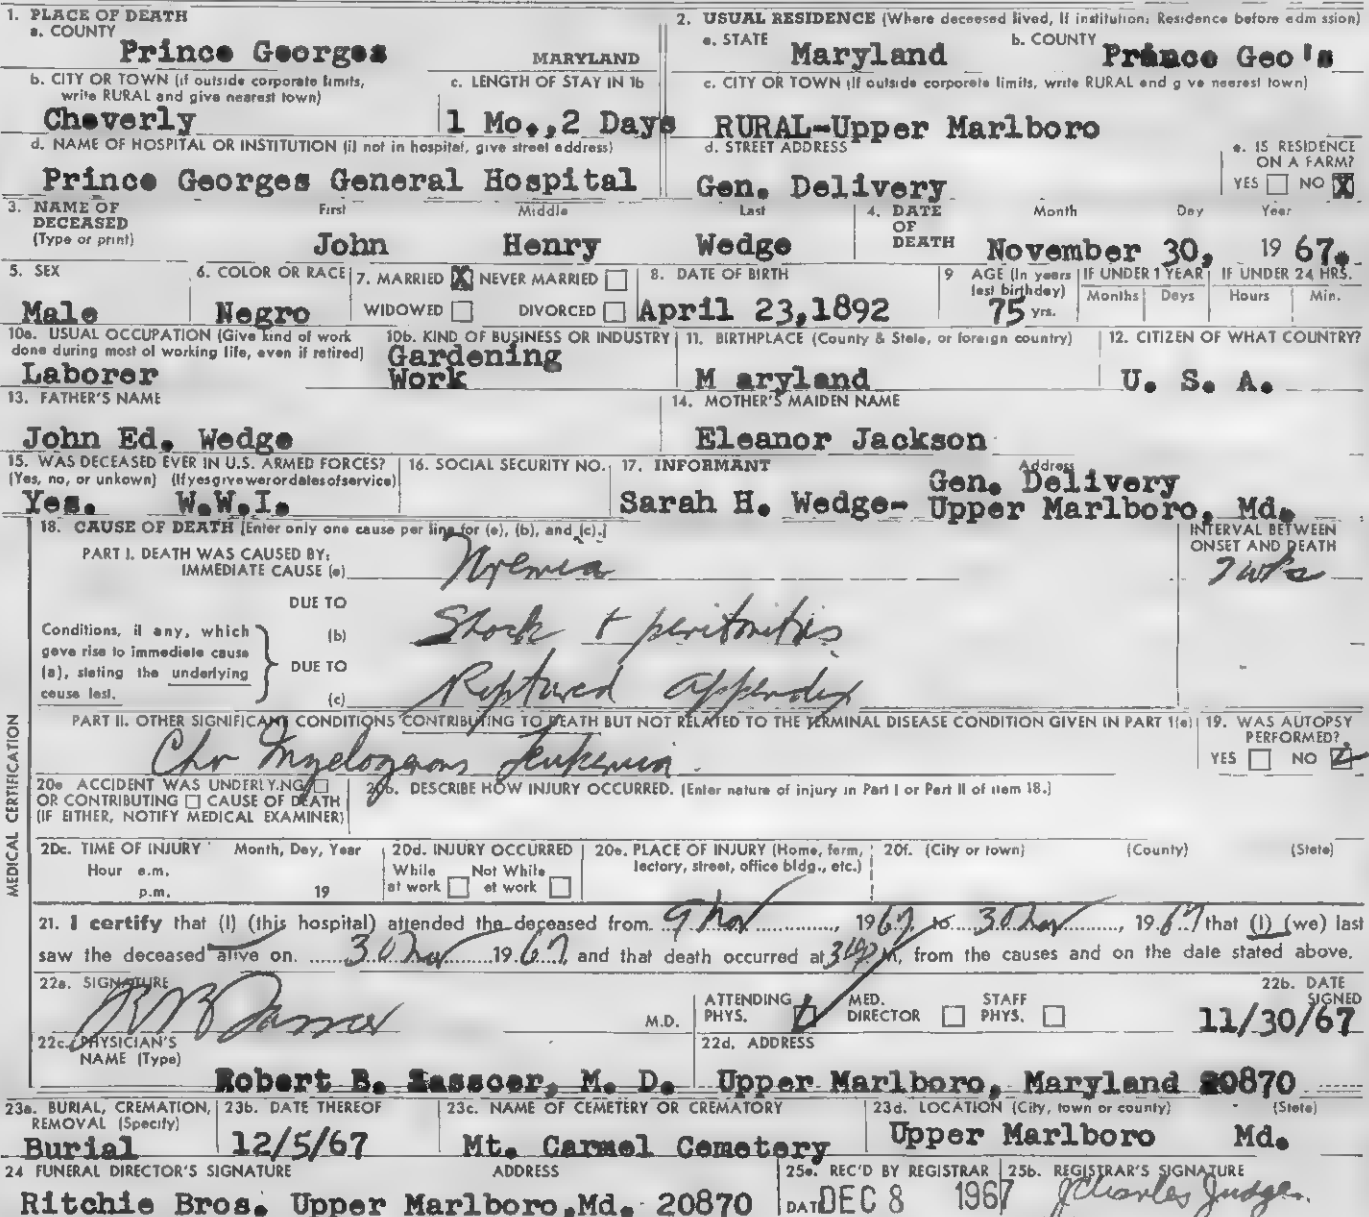 1. PLACE OF DEATH
a. COUNTY
Prince Georges MARYLAND
2. USUAL RESIDENCE (Where deceased lived, If institution: Residence before edm ssion)
a. STATE Maryland b. COUNTY Prince Geo's
b. CITY OR TOWN (if outside corporate limits, write RURAL and give nearest town)
Cheverly
c. LENGTH OF STAY IN 1b
1 Mo.,2 Days
c. CITY OR TOWN (If outside corporate limits, write RURAL and g ve nearest town)
RURAL-Upper Marlboro
d. NAME OF HOSPITAL OR INSTITUTION (if not in hospital, give street address)
Prince Georges General Hospital
d. STREET ADDRESS
Gen. Delivery
e. IS RESIDENCE ON A FARM?
YES NO X
3. NAME OF DECEASED (Type or print)
First Middle Last
John Henry Wedge
4. DATE OF DEATH
Month Day Year
November 30, 19 67.
5. SEX
Male
6. COLOR OR RACE
Negro
7. MARRIED X NEVER MARRIED
WIDOWED DIVORCED
8. DATE OF BIRTH
April 23,1892
9 AGE (In years last birthday)
75 yrs.
IF UNDER 1 YEAR
Months Days
IF UNDER 24 HRS.
Hours Min.
10a. USUAL OCCUPATION (Give kind of work done during most of working life, even if retired)
Laborer
10b. KIND OF BUSINESS OR INDUSTRY
Gardening
Work
11. BIRTHPLACE (County & State, or foreign country)
M aryland
12. CITIZEN OF WHAT COUNTRY?
U. S. A.
13. FATHER'S NAME
John Ed. Wedge
14. MOTHER'S MAIDEN NAME
Eleanor Jackson
15. WAS DECEASED EVER IN U.S. ARMED FORCES?
(Yes, no, or unkown) (If yes give war or dates of service)
Yes. W.W.I.
16. SOCIAL SECURITY NO.
17. INFORMANT Address
Sarah H. Wedge- Gen. Delivery
Upper Marlboro, Md.
MEDICAL CERTIFICATION
18. CAUSE OF DEATH [Enter only one cause per line for (a), (b), and (c).]
INTERVAL BETWEEN ONSET AND DEATH
PART I. DEATH WAS CAUSED BY:
IMMEDIATE CAUSE (a) Uremia
wks
DUE TO
Conditions, if any, which gave rise to immediate cause (a), stating the underlying cause last.
(b) Shock + peritonitis
DUE TO
(c) Ruptured appendix
PART II. OTHER SIGNIFICANT CONDITIONS CONTRIBUTING TO DEATH BUT NOT RELATED TO THE TERMINAL DISEASE CONDITION GIVEN IN PART 1(a)
Chr Myelogenous Leukemia
19. WAS AUTOPSY PERFORMED?
YES NO
20a ACCIDENT WAS UNDERLYING
OR CONTRIBUTING CAUSE OF DEATH
(IF EITHER, NOTIFY MEDICAL EXAMINER)
20b. DESCRIBE HOW INJURY OCCURRED. (Enter nature of injury in Part I or Part II of item 18.)
20c. TIME OF INJURY Month, Day, Year
Hour a.m.
p.m. 19
20d. INJURY OCCURRED
While at work Not While at work
20e. PLACE OF INJURY (Home, farm, factory, street, office bldg., etc.)
20f. (City or town) (County) (State)
21. I certify that (I) (this hospital) attended the deceased from 9 Nov, 1967 to 30 Nov, 1967 that (I) (we) last
saw the deceased alive on 30 Nov 1967, and that death occurred at M, from the causes and on the date stated above.
22a. SIGNATURE
M.D.
ATTENDING PHYS. MED. DIRECTOR STAFF PHYS.
22b. DATE SIGNED
11/30/67
22c. PHYSICIAN'S NAME (Type)
Robert B. Sasscer, M. D.
22d. ADDRESS
Upper Marlboro, Maryland 20870
23a. BURIAL, CREMATION, REMOVAL (Specify)
Burial
23b. DATE THEREOF
12/5/67
23c. NAME OF CEMETERY OR CREMATORY
Mt. Carmel Cemetery
23d. LOCATION (City, town or county) (State)
Upper Marlboro Md.
24 FUNERAL DIRECTOR'S SIGNATURE ADDRESS
Ritchie Bros. Upper Marlboro,Md. 20870
25a. REC'D BY REGISTRAR
DATE DEC 8 1967
25b. REGISTRAR'S SIGNATURE
J Charles Judge